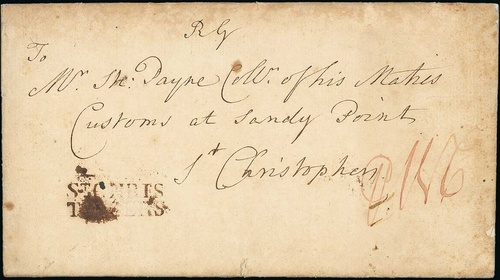 To
Mr. Ste: Payne Collr. of his Maties
Customs at Sandy Point
St Christophers
ST CHRIS